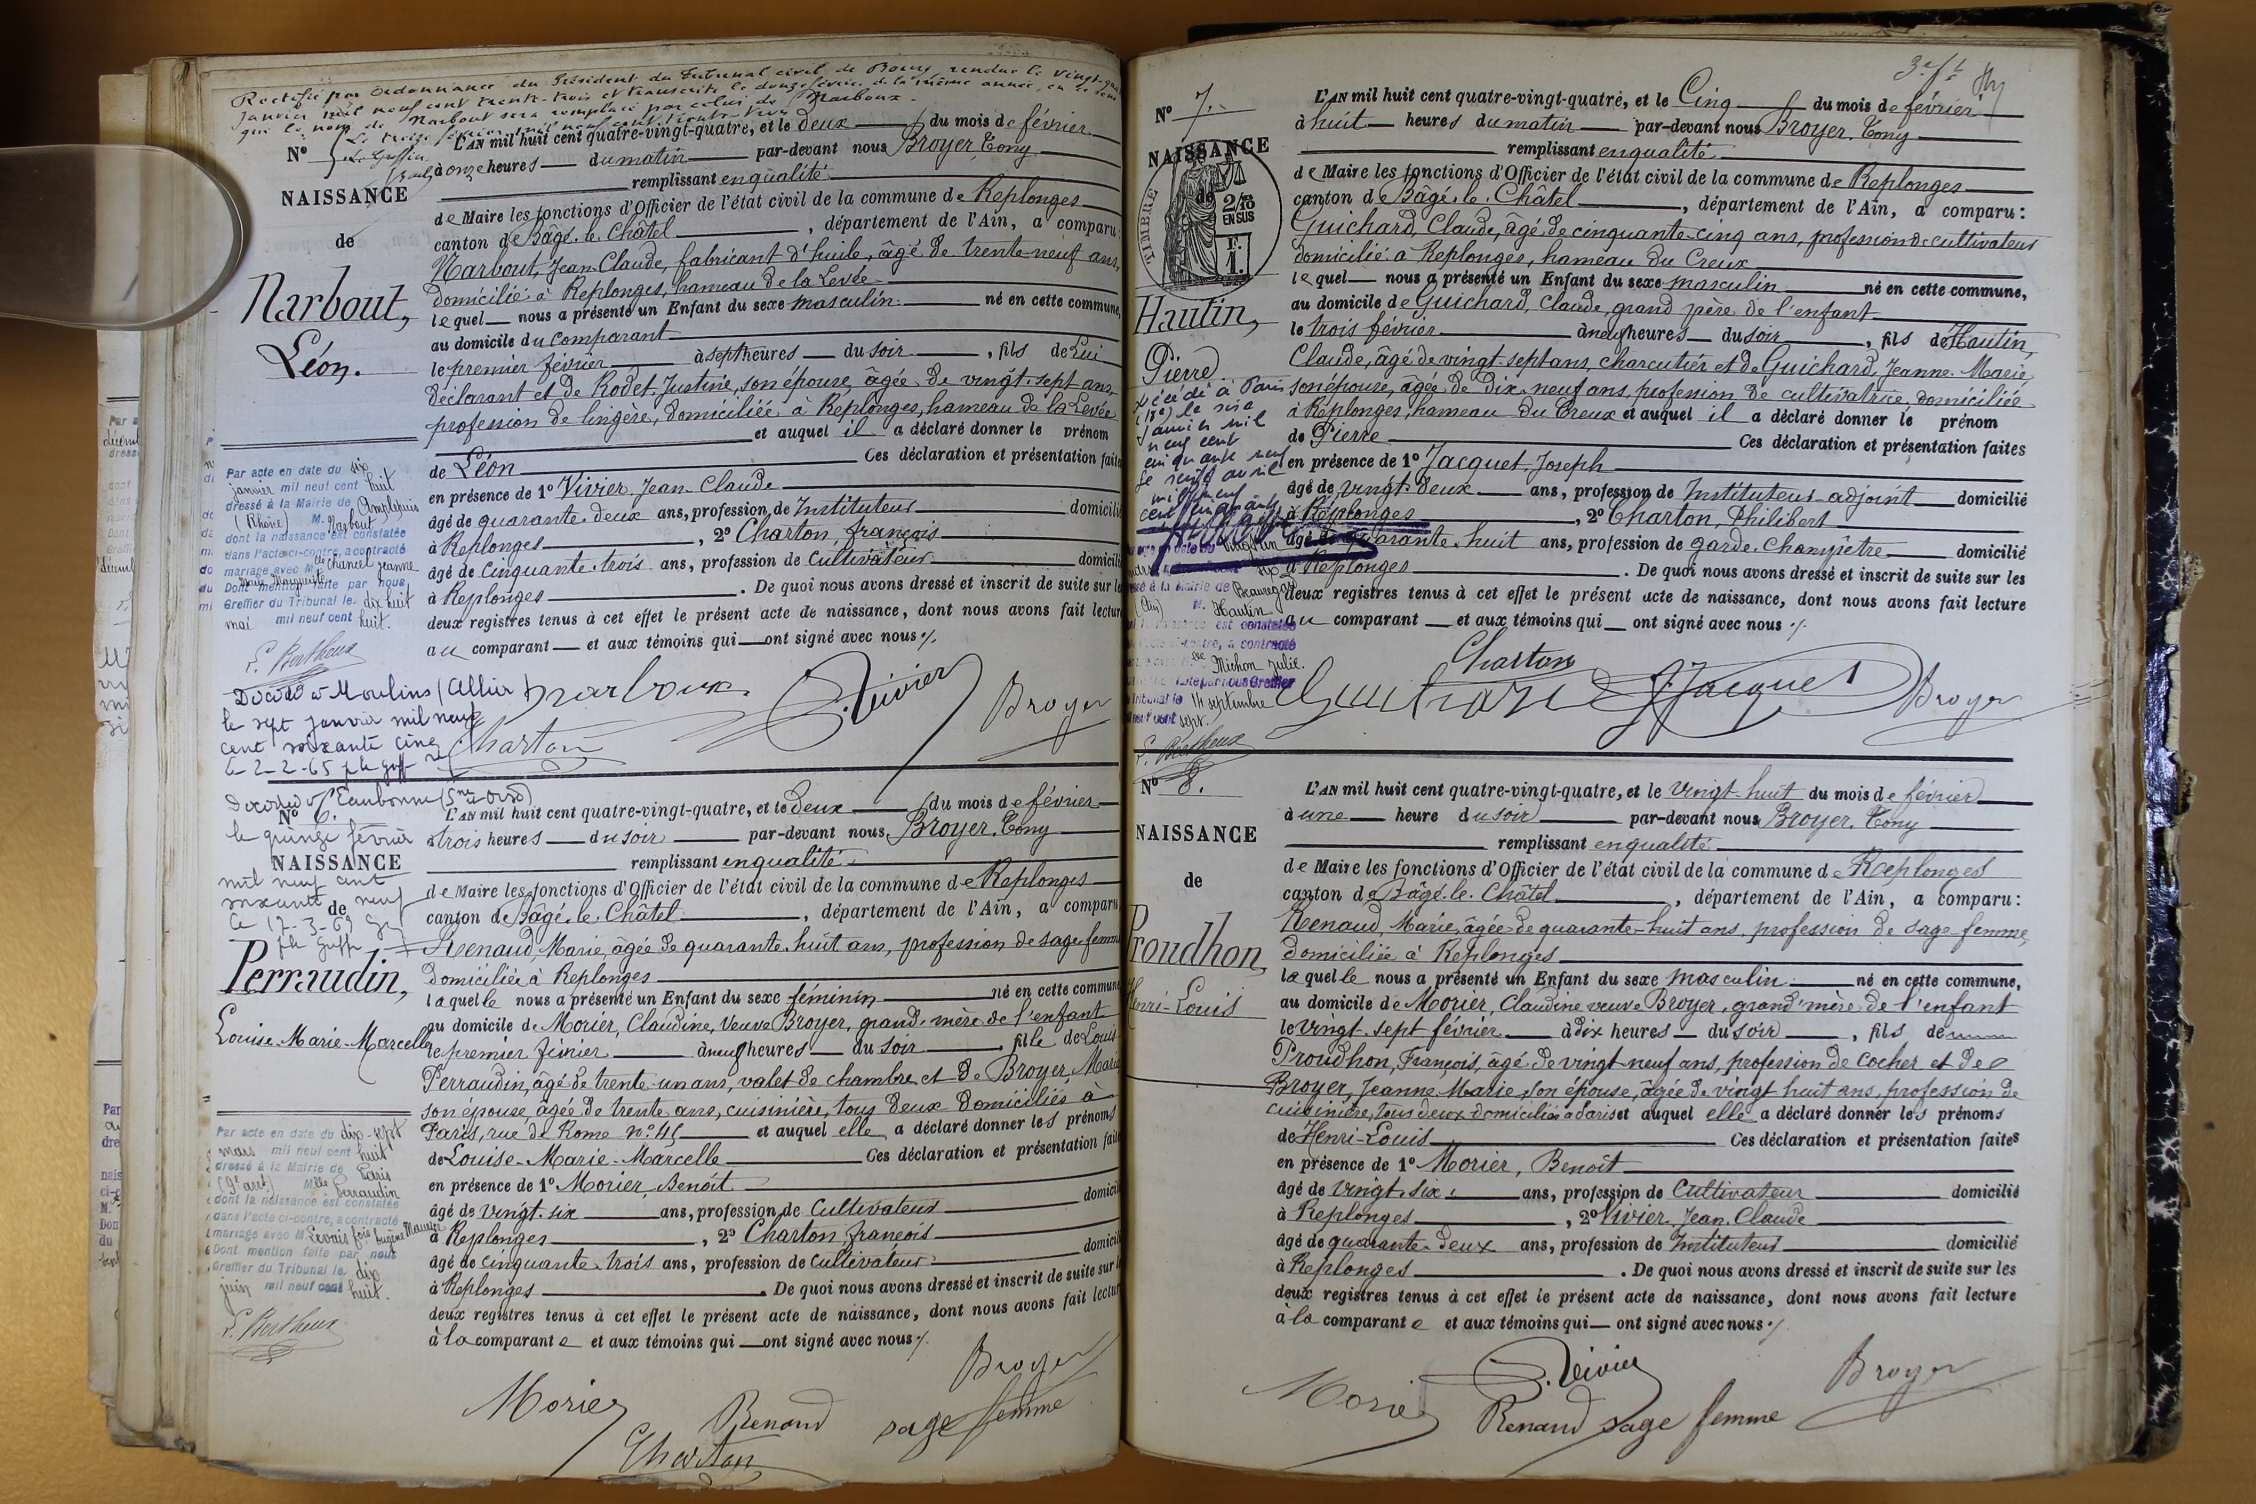 Rectifié par Ordonnance du Président du Tribunal civil de Bourg rendue le vingt-quatre
janvier mil neuf cent trente-trois et transcrite le douze février de la même année, en ce sens
que le nom de Narbout sera remplacé par celui de Narboux.
Le treize février mil neuf cent trente-trois
Le Greffier
Nº
NAISSANCE
de
Narbout,
Léon.
L'AN mil huit cent quatre-vingt-quatre, et le deux du mois de février
à onze heures du matin par-devant nous Broyer, Tony
remplissant en qualité
de Maire les fonctions d'Officier de l'état civil de la commune de Replonges
canton de Bâgé-le-Châtel, département de l'Ain, a comparu:
Narbout, Jean Claude, fabricant d'huile, âgé de trente-neuf ans,
domicilié à Replonges, hameau de la Levée
lequel nous a présenté un Enfant du sexe masculin né en cette commune,
au domicile du comparant
le premier février à sept heures du soir, fils de Lui
déclarant et de Rodet Justine, son épouse, âgée de vingt-sept ans,
profession de lingère, domiciliée à Replonges, hameau de la Levée
et auquel il a déclaré donner le prénom
de Léon Ces déclaration et présentation faites
en présence de 1º Vivier, Jean Claude
âgé de quarante-deux ans, profession de Instituteur domicilié
à Replonges, 2º Charton, françois
âgé de cinquante-trois ans, profession de cultivateur domicilié
à Replonges. De quoi nous avons dressé et inscrit de suite sur les
deux registres tenus à cet effet le présent acte de naissance, dont nous avons fait lecture
au comparant et aux témoins qui ont signé avec nous ./.
Narboux Vivier Broyer
Charton
Par acte en date du six
janvier mil neuf cent huit
dressé à la Mairie de Amplepuis
(Rhône) M. Narbout
dont la naissance est constatée
dans l'acte ci-contre, a contracté
mariage avec Mlle Chancel Jeanne
Marie Marguerite
Dont mention faite par nous
Greffier du Tribunal le dix huit
mai mil neuf cent huit.
Décédé à Moulins (Allier)
le sept janvier mil neuf
cent soixante cinq
le 2-2-65
Décédée à Eaubonne (Sne et Oise)
le quinze février
mil neuf cent
soixante neuf
le 17-3-69
Nº 6.
NAISSANCE
de
Perraudin,
Louise-Marie-Marcelle
L'AN mil huit cent quatre-vingt-quatre, et le deux du mois de février
à trois heures du soir par-devant nous Broyer, Tony
remplissant en qualité
de Maire les fonctions d'Officier de l'état civil de la commune de Replonges
canton de Bâgé-le-Châtel, département de l'Ain, a comparu
Renaud, Marie, âgée de quarante-huit ans, profession de sage femme
domiciliée à Replonges
laquelle nous a présenté un Enfant du sexe féminin né en cette commune
au domicile de Morier, Claudine, veuve Broyer, grand-mère de l'enfant
le premier février à neuf heures du soir, fille de Louis
Perraudin, âgé de trente-un ans, valet de chambre et de Broyer, Marie
son épouse, âgée de trente ans, cuisinière, tous deux domiciliés à
Paris, rue de Rome nº 45 et auquel elle a déclaré donner les prénoms
de Louise-Marie-Marcelle Ces déclaration et présentation faites
en présence de 1º Morier, Benoît
âgé de vingt-six ans, profession de cultivateur domicilié
à Replonges, 2º Charton, françois
âgé de cinquante-trois ans, profession de cultivateur domicilié
à Replonges. De quoi nous avons dressé et inscrit de suite sur les
deux registres tenus à cet effet le présent acte de naissance, dont nous avons fait lecture
à la comparante et aux témoins qui ont signé avec nous ./.
Morier Renaud sage femme Broyer
Charton
Par acte en date du dix-sept
mars mil neuf cent huit
dressé à la Mairie de Paris
(9e arrt) Mlle Perraudin
dont la naissance est constatée
dans l'acte ci-contre, a contracté
mariage avec M. Eugène Maurice
Dont mention faite par nous
Greffier du Tribunal le dix
juin mil neuf cent huit.
Nº 7.
NAISSANCE
de
TIMBRE
2/10
EN SUS
Hautin,
Pierre
L'AN mil huit cent quatre-vingt-quatre, et le Cinq du mois de février
à huit heures du matin par-devant nous Broyer, Tony
remplissant en qualité
de Maire les fonctions d'Officier de l'état civil de la commune de Replonges
canton de Bâgé-le-Châtel, département de l'Ain, a comparu:
Guichard, Claude, âgé de cinquante-cinq ans, profession de cultivateur
domicilié à Replonges, hameau du Creux
lequel nous a présenté un Enfant du sexe masculin né en cette commune,
au domicile de Guichard, Claude, grand père de l'enfant
le trois février à neuf heures du soir, fils de Hautin,
Claude, âgé de vingt-sept ans, charcutier et de Guichard, Jeanne-Marie
son épouse, âgée de dix-neuf ans, profession de cultivatrice, domiciliée
à Replonges, hameau du Creux et auquel il a déclaré donner le prénom
de Pierre Ces déclaration et présentation faites
en présence de 1º Jacquet, Joseph
âgé de vingt-deux ans, profession de Instituteur-adjoint domicilié
à Replonges, 2º Charton, Philibert
âgé de quarante-huit ans, profession de garde-champêtre domicilié
à Replonges. De quoi nous avons dressé et inscrit de suite sur les
deux registres tenus à cet effet le présent acte de naissance, dont nous avons fait lecture
au comparant et aux témoins qui ont signé avec nous ./.
Charton
Guichard J. Jacquet Broyer
Décédé à Paris
le six
janvier mil
neuf cent
cinquante neuf
Le vingt avril
mil neuf
cent cinquante
Mairie de Beauregard
(Ain) M. Hautin
Michon Julie.
14 septembre
sept.
Nº 8.
NAISSANCE
de
Proudhon,
Henri-Louis
L'AN mil huit cent quatre-vingt-quatre, et le vingt huit du mois de février
à une heure du soir par-devant nous Broyer, Tony
remplissant en qualité
de Maire les fonctions d'Officier de l'état civil de la commune de Replonges
canton de Bâgé-le-Châtel, département de l'Ain, a comparu:
Renaud, Marie, âgée de quarante-huit ans, profession de sage femme,
domiciliée à Replonges
laquelle nous a présenté un Enfant du sexe masculin né en cette commune,
au domicile de Morier, Claudine veuve Broyer, grand'mère de l'enfant
le vingt-sept février à dix heures du soir, fils de
Proudhon, François, âgé de vingt-neuf ans, profession de cocher et de
Broyer, Jeanne-Marie, son épouse, âgée de vingt huit ans, profession de
cuisinière, tous deux domiciliés à Paris et auquel elle a déclaré donner les prénoms
de Henri-Louis Ces déclaration et présentation faites
en présence de 1º Morier, Benoît
âgé de vingt-six ans, profession de cultivateur domicilié
à Replonges, 2º Vivier, Jean-Claude
âgé de quarante-deux ans, profession de Instituteur domicilié
à Replonges. De quoi nous avons dressé et inscrit de suite sur les
deux registres tenus à cet effet le présent acte de naissance, dont nous avons fait lecture
à la comparante et aux témoins qui ont signé avec nous ./.
Morier Vivier Broyer
Renaud sage femme